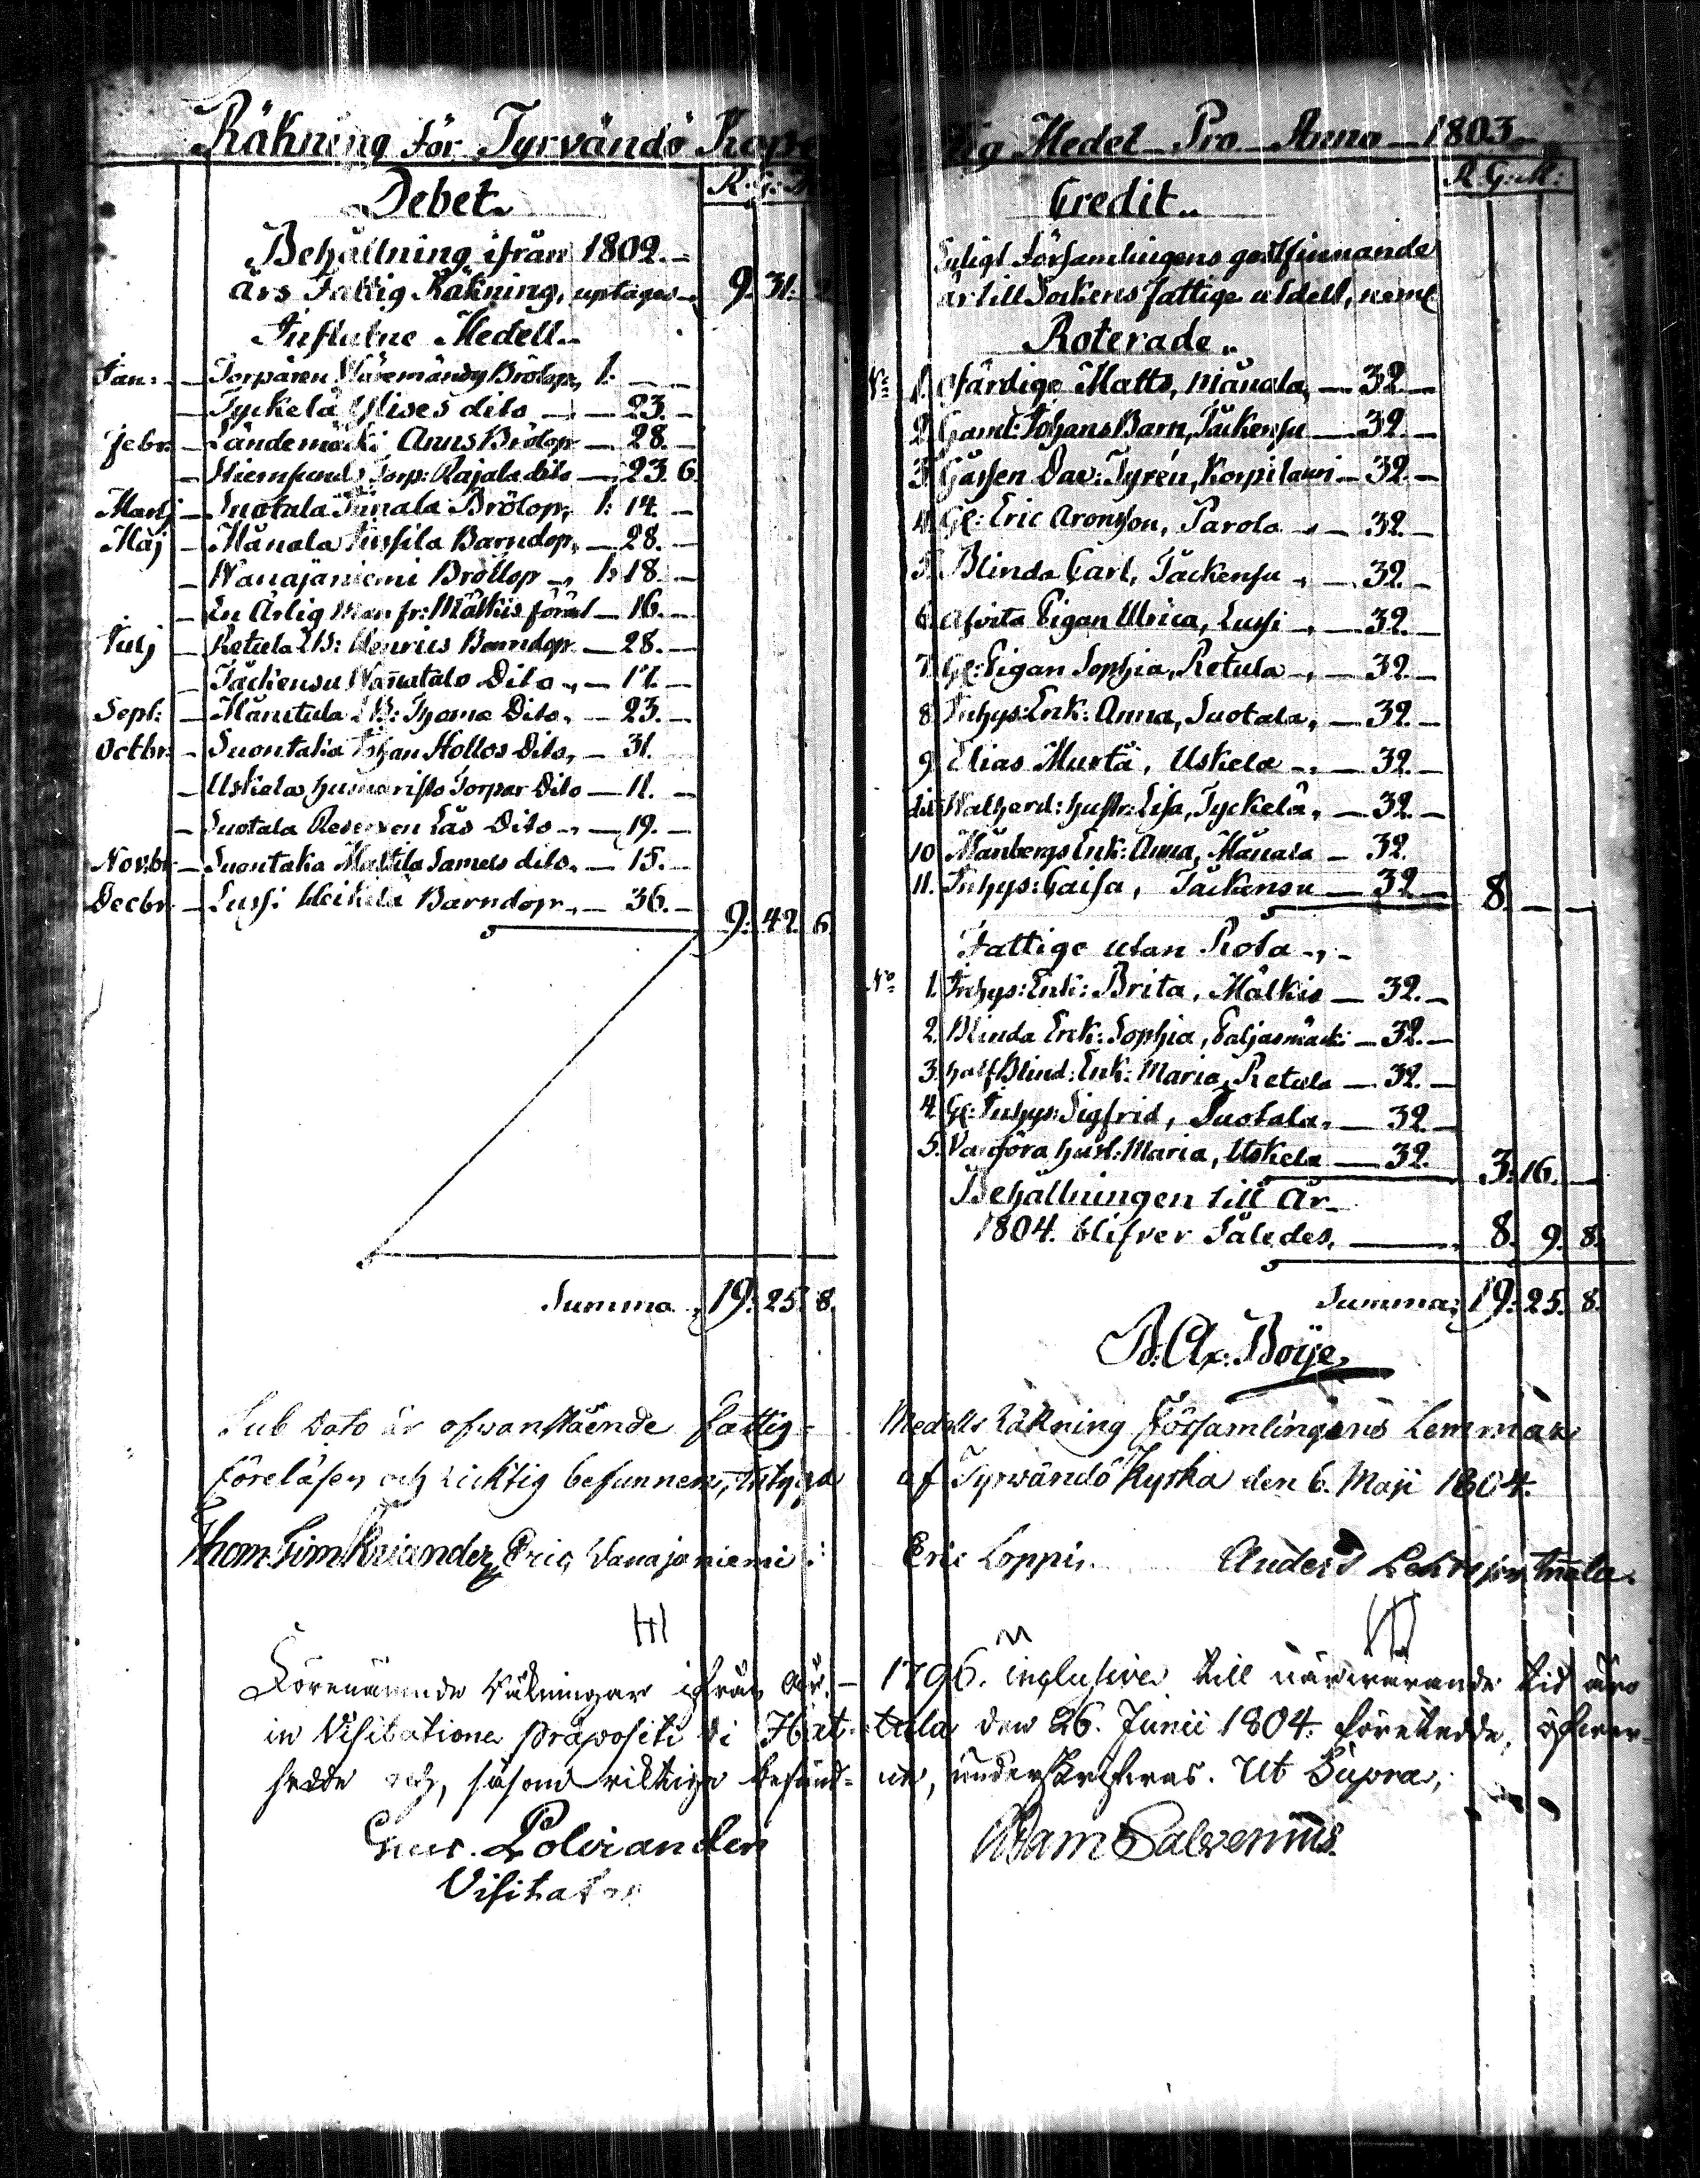 Räkning för Tyrvändö Kape
Debet. R: G: 
Behållning ifrån 1802.
års Fattig Räkning, uptages 9. 31. 2
Influtne Medell.
Jan: Torparen Brölop, 1:
Tyckelä Ylises dito 23.
Febr: Anns Brölop 28.
Torp: Rajala dito 23. 6
Martj Suotala Brölop, 1: 14.
Maj Mänala Jussila Barndop, 28.
Wanajäniemi Bröllop 1: 18.
En Ärlig Man fr: Mälkis 16.
Julj Retula Henrics Barndop 28.
Täckensu Dito 17.
Sept: Thoma Dito, 23.
Octbr: Suontaka Johan Hollos Dito, 31.
Uskela Torpar Dito 11.
Suotala Dito 19.
Novbr: Suontaka Mattila Samels dito, 15.
Decbr: Lussi Heikilä Barndop, 36. 9. 42. 6.
Summa 19: 25. 8.
Sub Dato är ofvanstående Fattig-
föreläsen och ricktig befunnen,
Thom Sim Kriander, Eric Wanajaniemi
Förenämnde Räkningar ifrån år
in Visitatione Præpositi i Hat-
sedde och, såsom riktiga befund-
Gust. Polviander
Visitator
tig Medel Pro Anno 1803
Credit. R: G: M:
Enligt Församlingens godtfinnande
är till Sockens fattige utdelt, neml.
Roterade.
No 1. ofärdige Matts, Mänala, 32.
2. Gaml: Johans Barn, Täckensu 32.
3. Gossen Dav: Tyrén, Korpilauri 32.
4. Gl: Eric Aronsson, Parola 32.
5. Blinda Carl, Täckensu 32.
6. Afvita Pigan Ulrica, Lussi 32.
7. Gl: Pigan Sophia, Retula 32.
8. Inhys: Enk: Anna, Suotala, 32.
9. Elias Murtä, Uskela 32.
dit Hustr: Lisa, Tyckelä, 32.
10 Månbergs Enk: Anna, Mänala 32.
11. Inhys: Caisa, Täckensu 32. 8.
Fattige utan Rota
No 1. Inhys: Enk: Brita, Mälkis 32.
2. Blinda Enk: Sophia, 32.
3. half Blind: Enk: Maria, Retula 32.
4. Gl: Inhys: Sigfrid, Suotala, 32.
5. Vanföra hust: Maria, Uskela 32. 3: 16.
Behållningen till År
1804. blifver Således, 8. 9. 8.
Summa: 19: 25. 8.
B: Ax: Boije
Medells Räkning Församlingens Lemmar
af Tyrvändö Kyrka den 6. Maji 1804.
Eric Loppis. Anders
1796. inclusive till närvarande tid äro
tula den 26. Junii 1804. företedde, öfver-
ne, underskrifvas. Ut Supra,
Adam Salvenius.